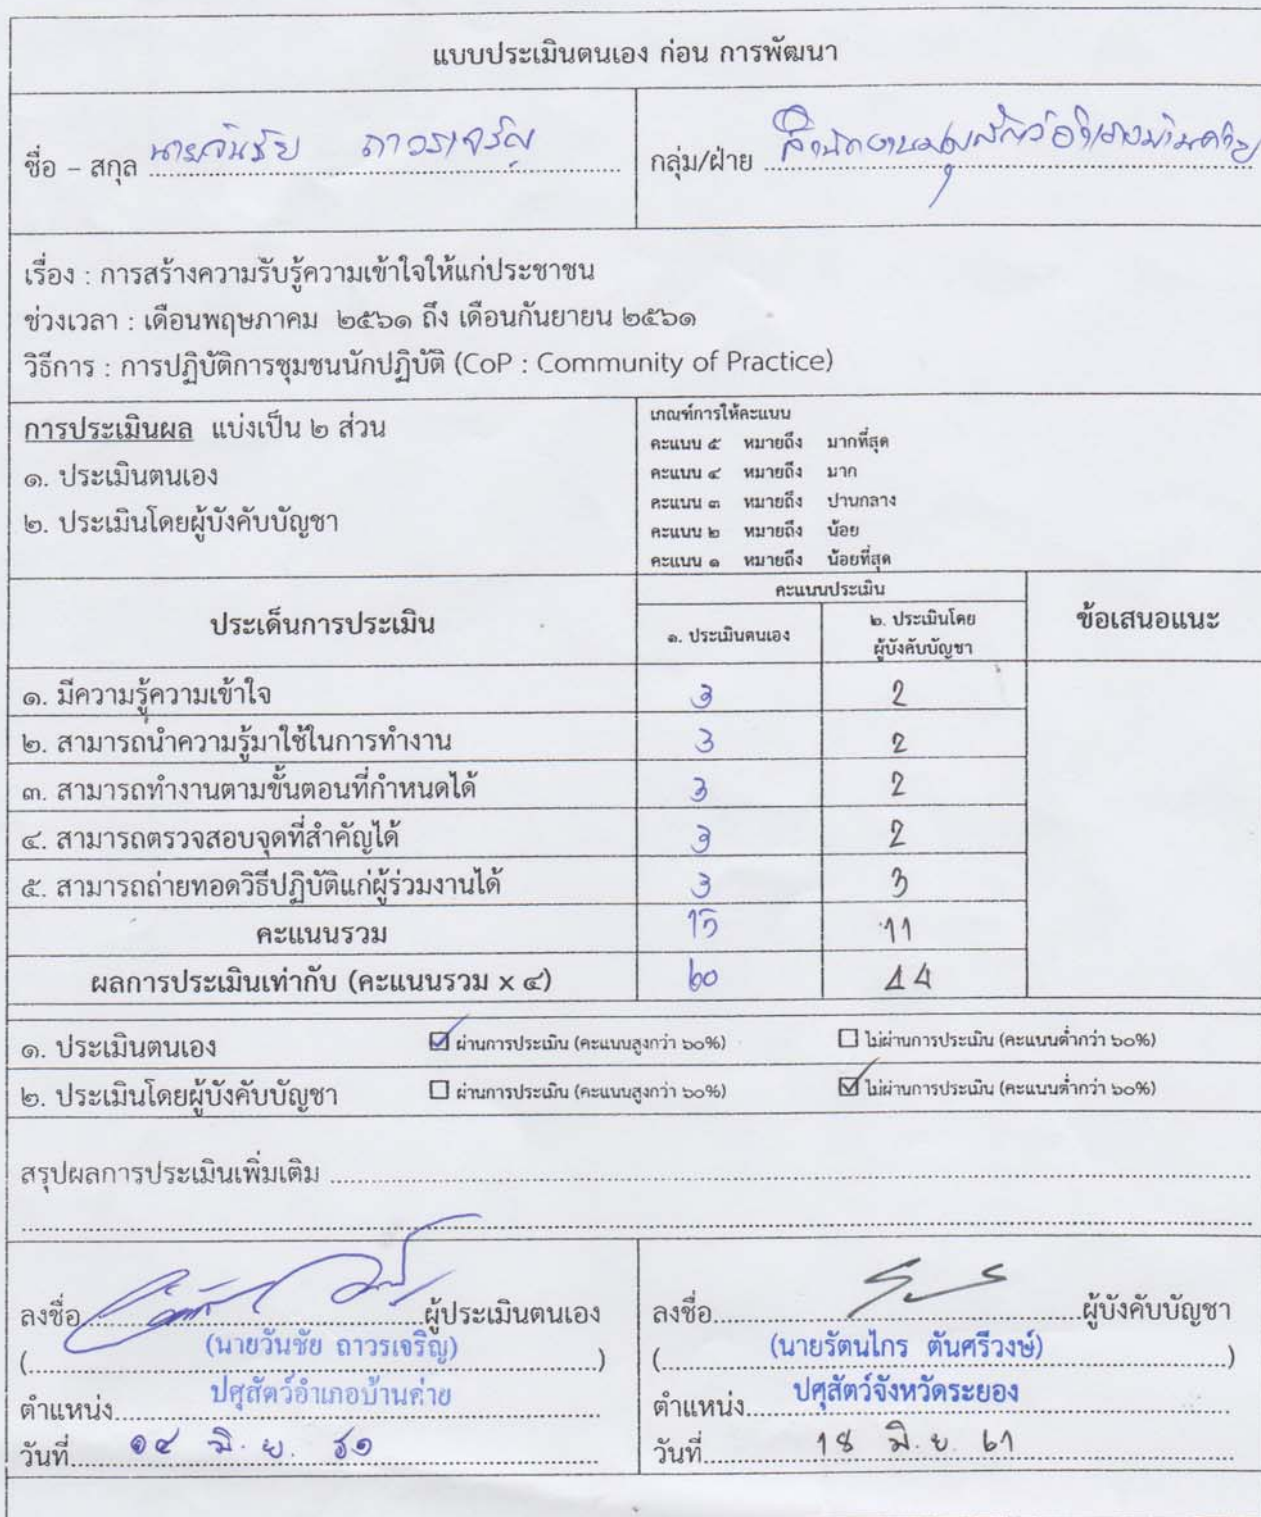 แบบประเมินตนเอง ก่อน การพัฒนา
ชื่อ – สกุล นายวันชัย ถาวรเจริญ
กลุ่ม/ฝ่าย สำนักงานปศุสัตว์อำเภอบ้านค่าย
เรื่อง : การสร้างความรับรู้ความเข้าใจให้แก่ประชาชน
ช่วงเวลา : เดือนพฤษภาคม ๒๕๖๑ ถึง เดือนกันยายน ๒๕๖๑
วิธีการ : การปฏิบัติการชุมชนนักปฏิบัติ (CoP : Community of Practice)
การประเมินผล แบ่งเป็น ๒ ส่วน
๑. ประเมินตนเอง
๒. ประเมินโดยผู้บังคับบัญชา
เกณฑ์การให้คะแนน
คะแนน ๕ หมายถึง มากที่สุด
คะแนน ๔ หมายถึง มาก
คะแนน ๓ หมายถึง ปานกลาง
คะแนน ๒ หมายถึง น้อย
คะแนน ๑ หมายถึง น้อยที่สุด
ประเด็นการประเมิน
คะแนนประเมิน
๑. ประเมินตนเอง
๒. ประเมินโดย
ผู้บังคับบัญชา
ข้อเสนอแนะ
๑. มีความรู้ความเข้าใจ 3 2
๒. สามารถนำความรู้มาใช้ในการทำงาน 3 2
๓. สามารถทำงานตามขั้นตอนที่กำหนดได้ 3 2
๔. สามารถตรวจสอบจุดที่สำคัญได้ 3 2
๕. สามารถถ่ายทอดวิธีปฏิบัติแก่ผู้ร่วมงานได้ 3 3
คะแนนรวม 15 11
ผลการประเมินเท่ากับ (คะแนนรวม x ๔) 60 44
๑. ประเมินตนเอง ☑ ผ่านการประเมิน (คะแนนสูงกว่า ๖๐%) ☐ ไม่ผ่านการประเมิน (คะแนนต่ำกว่า ๖๐%)
๒. ประเมินโดยผู้บังคับบัญชา ☐ ผ่านการประเมิน (คะแนนสูงกว่า ๖๐%) ☑ ไม่ผ่านการประเมิน (คะแนนต่ำกว่า ๖๐%)
สรุปผลการประเมินเพิ่มเติม
ลงชื่อ ผู้ประเมินตนเอง
(นายวันชัย ถาวรเจริญ)
ตำแหน่ง ปศุสัตว์อำเภอบ้านค่าย
วันที่ ๑๔ มิ.ย. ๖๑
ลงชื่อ ผู้บังคับบัญชา
(นายรัตนไกร ตันศรีวงษ์)
ตำแหน่ง ปศุสัตว์จังหวัดระยอง
วันที่ 18 มิ.ย. 61